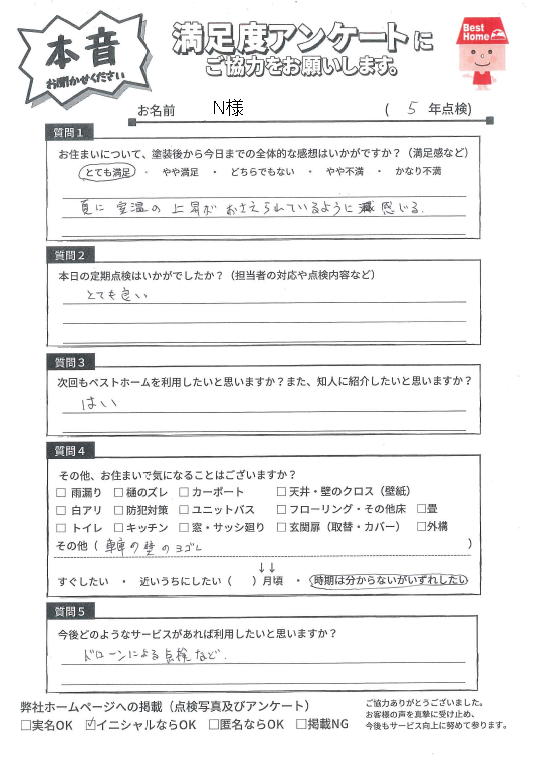 本音
お聞かせください
満足度アンケートに
ご協力をお願いします。
Best Home
お名前 N様 ( 5 年点検)
質問1
お住まいについて、塗装後から今日までの全体的な感想はいかがですか?（満足感など）
とても満足 ・ やや満足 ・ どちらでもない ・ やや不満 ・ かなり不満
夏に 室温の 上昇が おさえられているように 感じる.
質問2
本日の定期点検はいかがでしたか?（担当者の対応や点検内容など）
とても良い
質問3
次回もベストホームを利用したいと思いますか?また、知人に紹介したいと思いますか?
はい
質問4
その他、お住まいで気になることはございますか?
□ 雨漏り □ 樋のズレ □ カーポート □ 天井・壁のクロス（壁紙）
□ 白アリ □ 防犯対策 □ ユニットバス □ フローリング・その他床 □畳
□ トイレ □ キッチン □ 窓・サッシ廻り □ 玄関扉（取替・カバー） □外構
その他（ の壁のヨゴレ ）
↓↓
すぐしたい ・ 近いうちにしたい（ ）月頃 ・ 時期は分からないがいずれしたい
質問5
今後どのようなサービスがあれば利用したいと思いますか?
ドローンによる点検など.
弊社ホームページへの掲載（点検写真及びアンケート）
□実名OK ☑イニシャルならOK □匿名ならOK □掲載NG
ご協力ありがとうございました。
お客様の声を真摯に受け止め、
今後もサービス向上に努めて参ります。